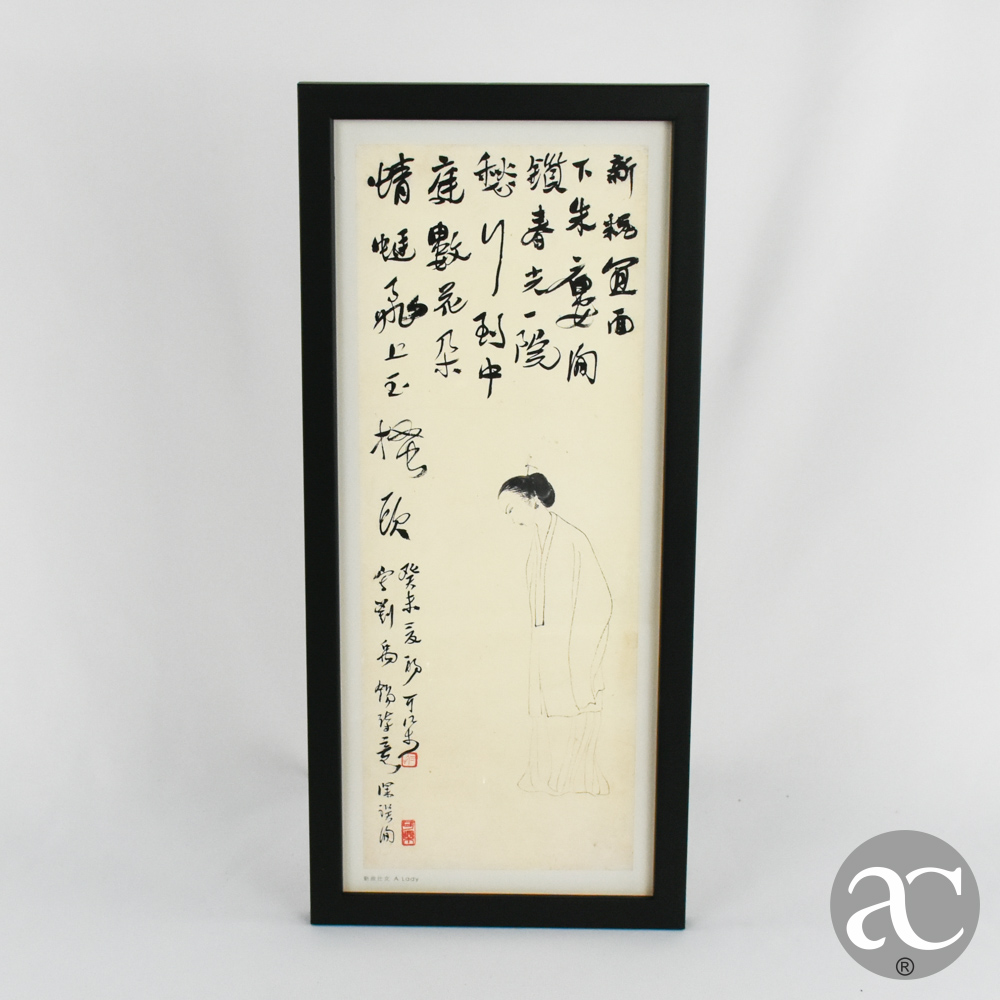 新粧宜面
下朱廔洵
鎖春光一院
愁行到中
庭數花朵
蜻蜓飛上玉搔頭
癸未夏 可
寫劉禹錫詩意
深誤洵
A Lady
ac
®